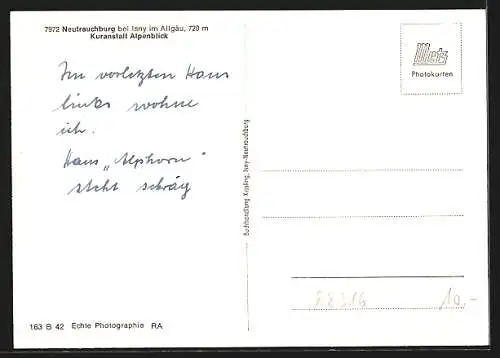 7972 Neutrauchburg bei Isny im Allgäu, 720 m
Kuranstalt Alpenblick
Im vorletzten Haus
links wohne
ich.
Haus „Alphorn"
steht schräg
Metz
Photokarten
Buchhandlung Kipping, Isny-Neutrauchburg
10.-
163 B 42 Echte Photographie RA